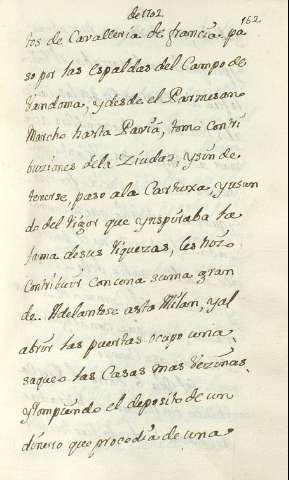 de 1702
162
tos de Cavalleria de francia. pa
so por las espaldas del Campo de
Vandoma, y desde el Parmesano
Marcho hasta Pavia, tomo contri
buziones dela Ziudad, y sin de
tenerse, paso ala Cartuxa, y usan
do del Vigor que ynspiraba la
fama de sus Riquezas, les hizo
Contribuir con una suma gran
de.. Adelantose asta Milan, y al
abrir las puertas ocupo una.
saqueo las Casas mas Vezinas.
y Rompiendo el deposito de un
dinero que procedia de una